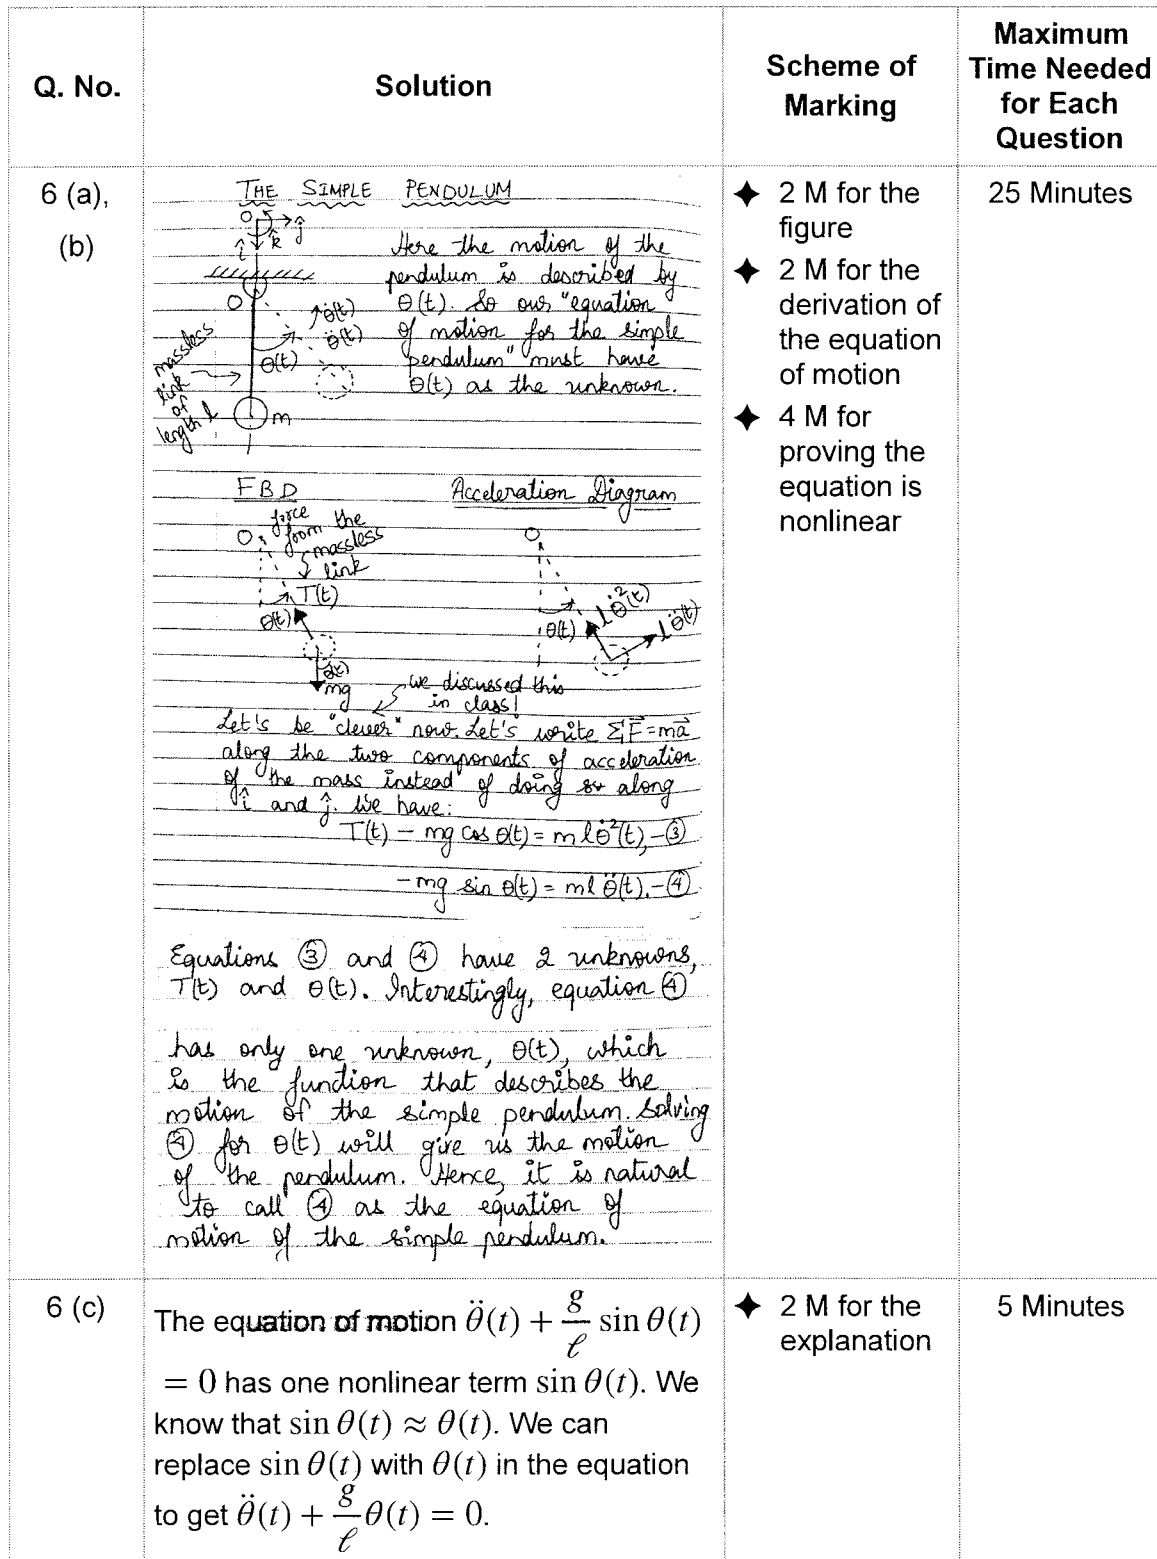 Q. No.
Solution
Scheme of
Marking
Maximum
Time Needed
for Each
Question
6 (a),
(b)
THE SIMPLE PENDULUM
O
ĵ
î
k̂
Here the motion of the
pendulum is described by
θ(t). So our "equation
of motion for the simple
pendulum" must have
θ(t) as the unknown.
O
θ̇(t)
θ̈(t)
θ(t)
massless
link
of
length l
m
FBD
Acceleration Diagram
O
force
from the
massless
link
T(t)
θ(t)
θ(t)
mg
O
θ(t)
lθ̇²(t)
lθ̈(t)
we discussed this
in class!
Let's be "clever" now. Let's write ΣF⃗=ma⃗
along the two components of acceleration
of the mass instead of doing so along
î and ĵ. We have:
T(t) − mg cos θ(t) = mlθ̇²(t), −③
−mg sin θ(t) = ml θ̈(t). −④
Equations ③ and ④ have 2 unknowns,
T(t) and θ(t). Interestingly, equation ④
has only one unknown, θ(t), which
is the function that describes the
motion of the simple pendulum. Solving
④ for θ(t) will give us the motion
of the pendulum. Hence, it is natural
to call ④ as the equation of
motion of the simple pendulum.
✦ 2 M for the
figure
✦ 2 M for the
derivation of
the equation
of motion
✦ 4 M for
proving the
equation is
nonlinear
25 Minutes
6 (c)
The equation of motion θ̈(t) + g/ℓ sin θ(t)
= 0 has one nonlinear term sin θ(t). We
know that sin θ(t) ≈ θ(t). We can
replace sin θ(t) with θ(t) in the equation
to get θ̈(t) + g/ℓ θ(t) = 0.
✦ 2 M for the
explanation
5 Minutes